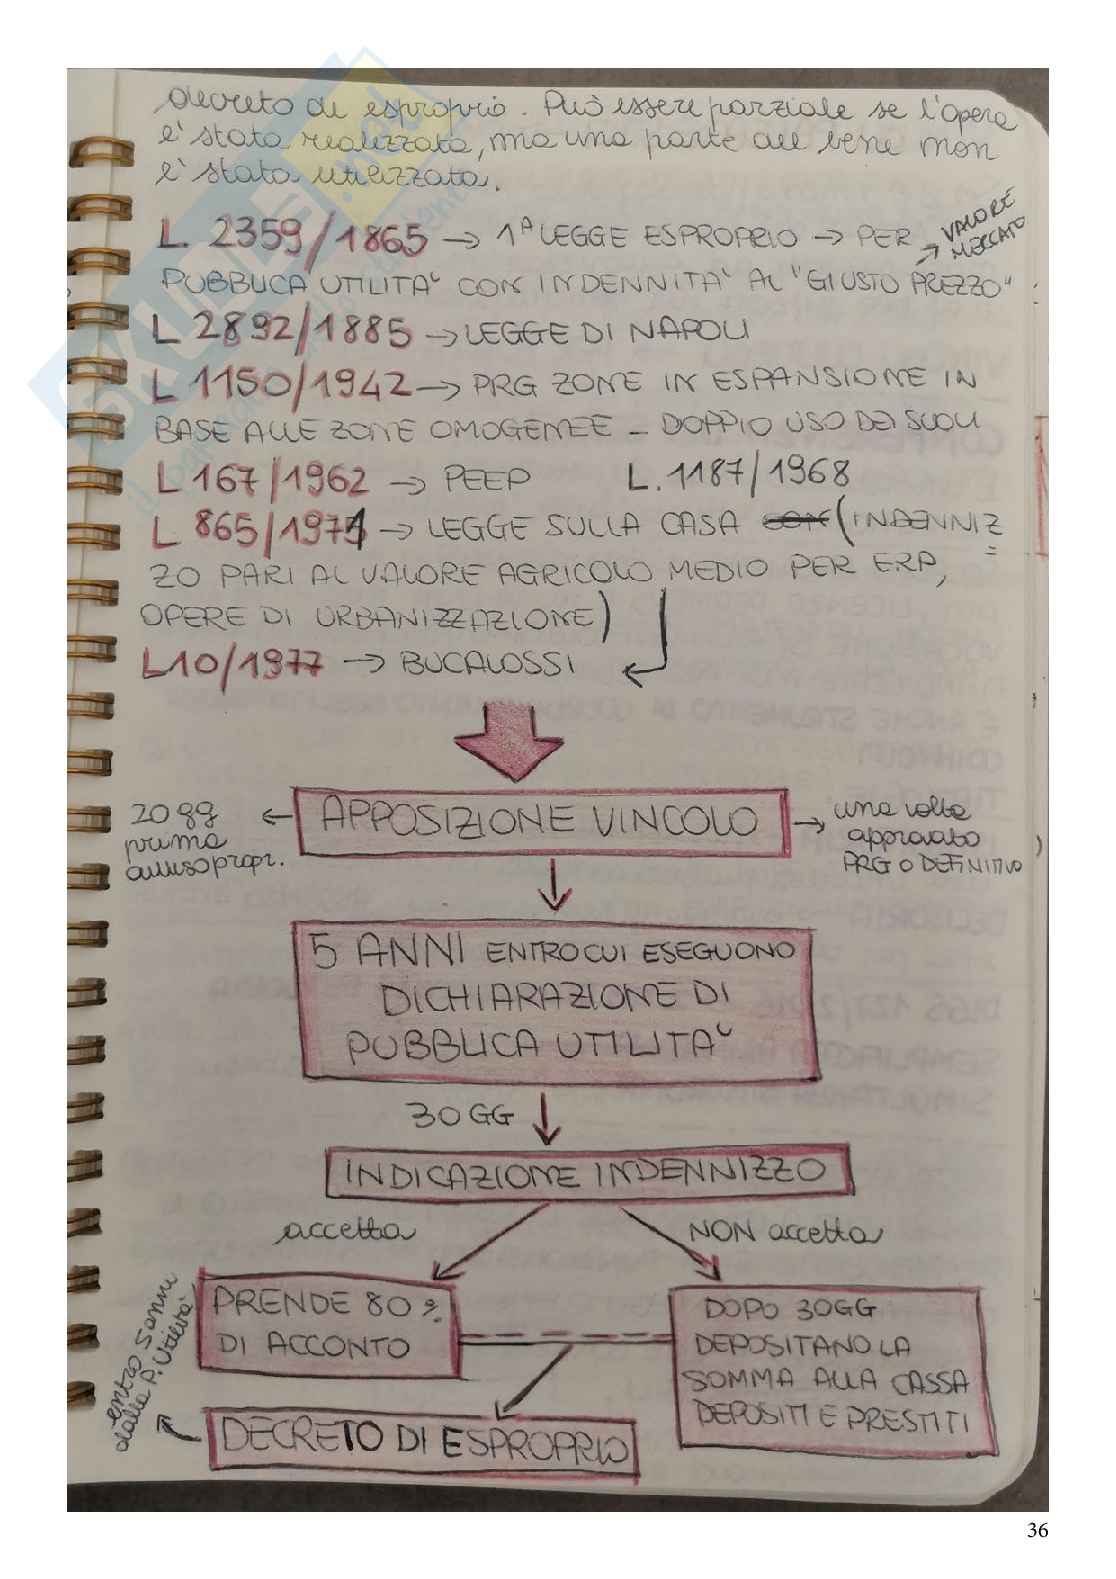 decreto di esproprio. Può essere parziale se l'opera
e' stata realizzata, ma una parte del bene non
e' stata utilizzata.
L. 2359/1865 → 1ª LEGGE ESPROPRIO → PER → VALORE MERCATO
PUBBLICA UTILITA' CON INDENNITA' AL "GIUSTO PREZZO"
L 2892/1885 → LEGGE DI NAPOLI
L 1150/1942 → PRG ZONE IN ESPANSIONE IN
BASE ALLE ZONE OMOGENEE - DOPPIO USO DEI SUOLI
L 167/1962 → PEEP L. 1187/1968
L 865/1971 → LEGGE SULLA CASA CON (INDENNIZ
ZO PARI AL VALORE AGRICOLO MEDIO PER ERP,
OPERE DI URBANIZZAZIONE)
L10/1977 → BUCALOSSI
APPOSIZIONE VINCOLO
20 gg
prima
avviso propr.
una volta
approvato
PRG O DEFINITIVO
5 ANNI ENTRO CUI ESEGUONO
DICHIARAZIONE DI
PUBBLICA UTILITA'
30 GG
INDICAZIONE INDENNIZZO
accetta
NON accetta
PRENDE 80%
DI ACCONTO
DOPO 30GG
DEPOSITANO LA
SOMMA ALLA CASSA
DEPOSITI E PRESTITI
entro 5 anni
dalla P. Utilità
DECRETO DI ESPROPRIO
36